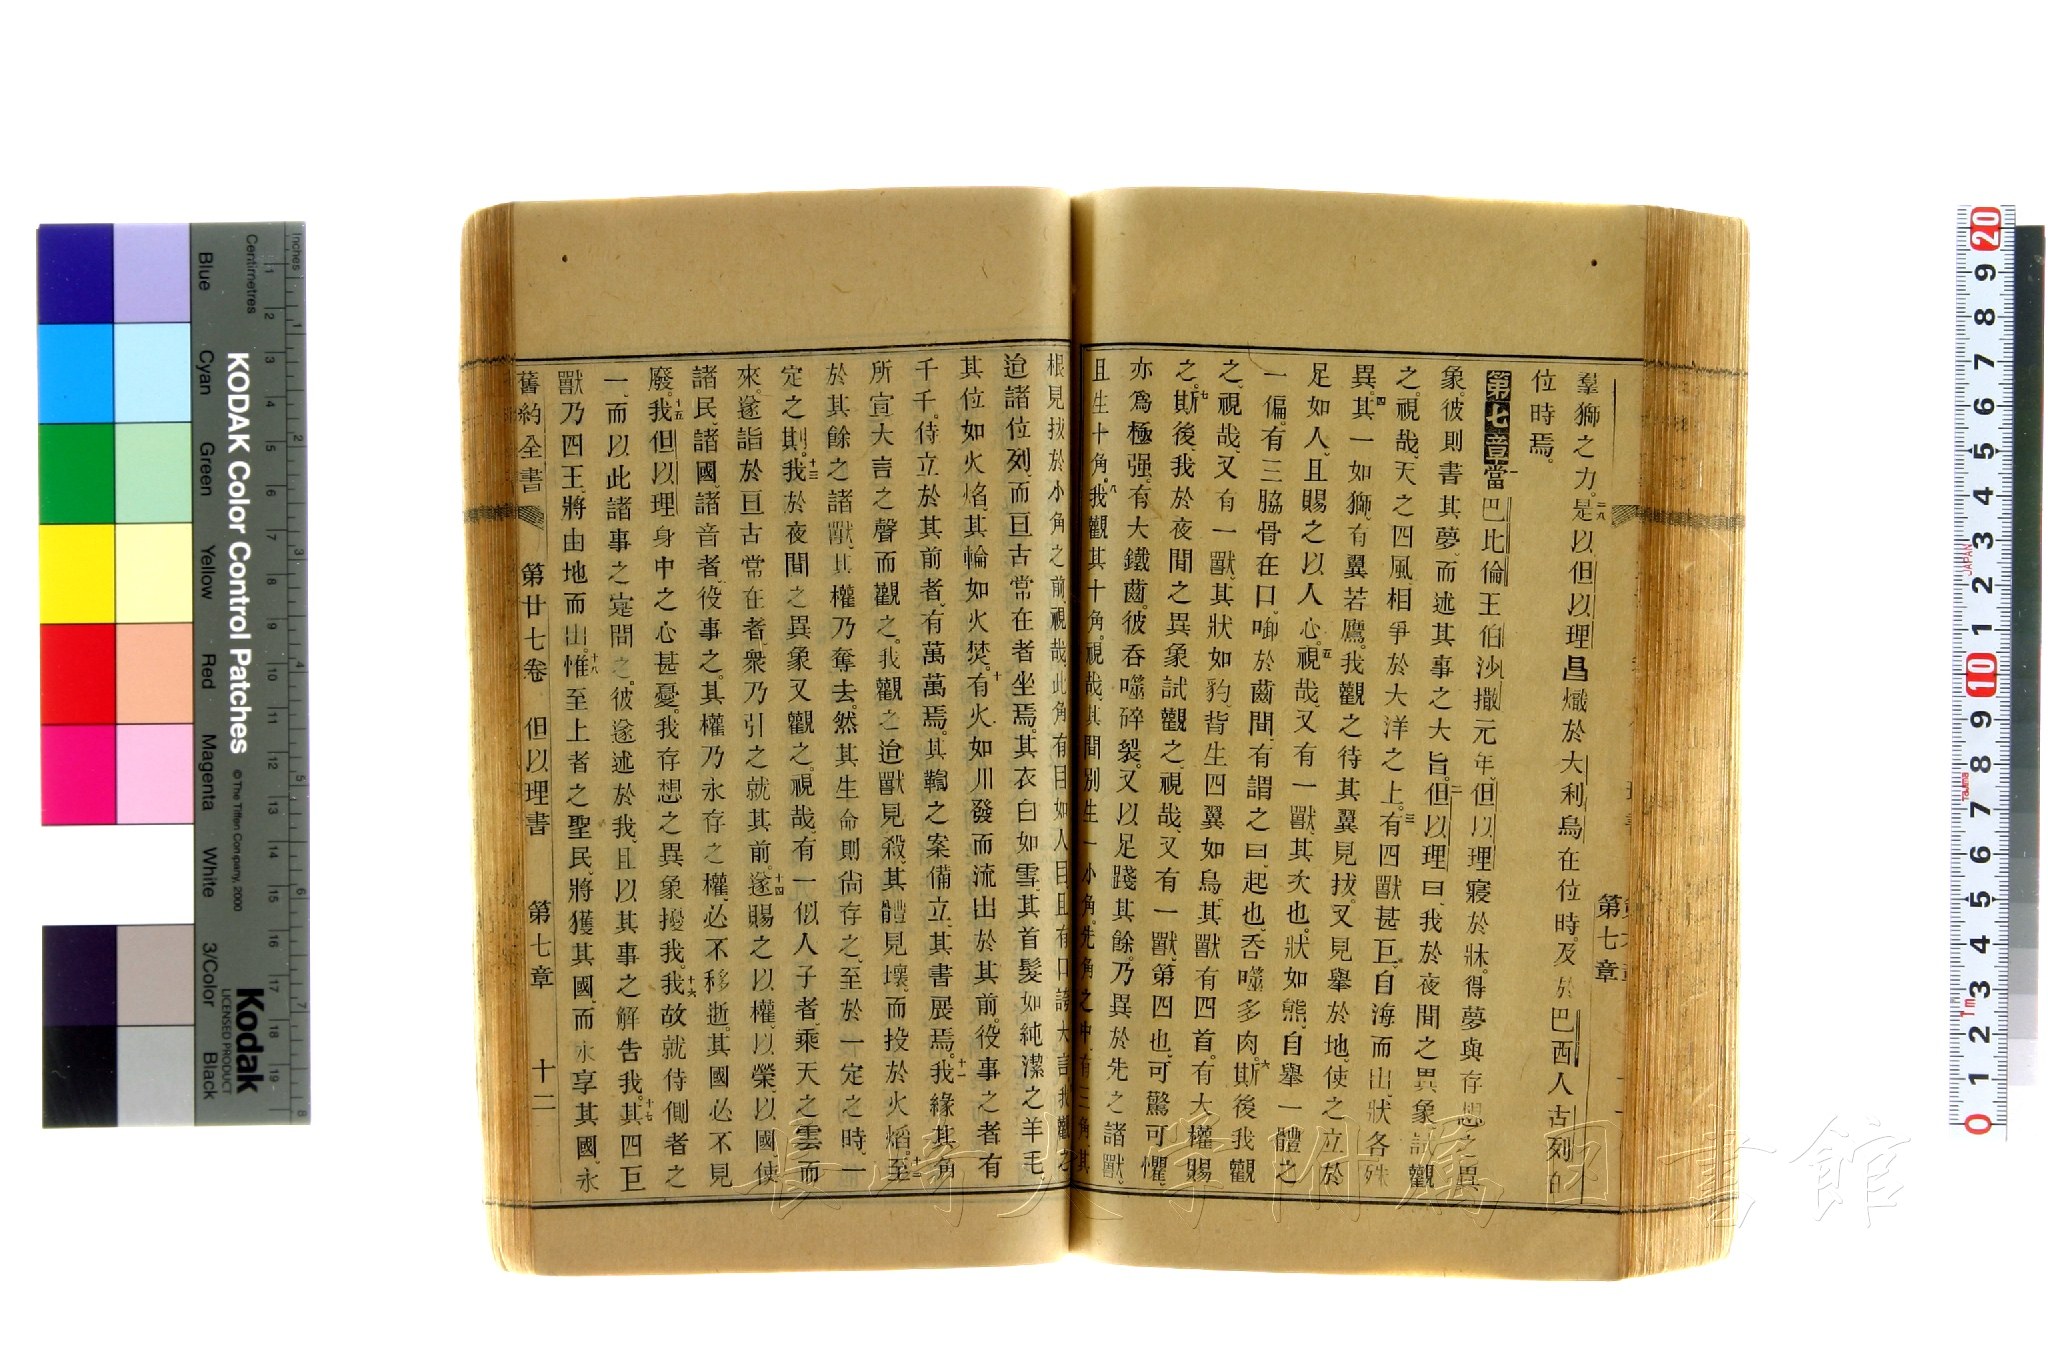 羣獅之力。二九是以但以理昌熾於大利烏在位時、及於巴西人古列在
位時焉。
第七章一當巴比倫王伯沙撒元年、但以理寢於牀。得夢與存想之異
象。彼則書其夢、而述其事之大旨。二但以理曰、我於夜間之異象試觀
之。視哉、天之四風、相爭於大洋之上。三有四獸甚巨、自海而出、狀各殊
異。四其一如獅、有翼若鷹。我觀之待其翼見拔。又見舉於地、使之立於
足如人、且賜之以人心。五視哉、又有一獸、其次也。狀如熊、自舉一體之
一偏。有三脇骨在口、啣於齒間、有謂之曰、起也、吞噬多肉。六斯後我觀
之、視哉、又有一獸、其狀如豹、背生四翼如鳥、其獸有四首。有大權賜
之。七斯後、我於夜間之異象試觀之、視哉、又有一獸、第四也、可驚可懼、
亦爲極强。有大鐵齒。彼吞噬碎裂。又以足踐其餘。乃異於先之諸獸、
且生十角。八我觀其十角。視哉、其間別生一小角。先角之中、有三角、其
根見拔於小角之前、視哉、此角有目如人目、且有口誇大言、我觀之
迨諸位列、而亘古常在者坐焉。其衣白如雪、其首髮如純潔之羊毛、
其位如火焰、其輪如火焚。十有火如川發而流出於其前。役事之者有
千千。侍立於其前者、有萬萬焉。其鞫之案備立、其書展焉。十一我緣其角
所宣大言之聲而觀之。我觀之迨獸見殺、其體見壞而投於火焰。十二至
於其餘之諸獸、其權乃奪去。然其生命則尚存之、至於一定之時、一
定之期。十三我於夜間之異象又觀之。視哉、有一似人子者、乘天之雲而
來。遂詣於亘古常在者、衆乃引之就其前。十四遂賜之以權、以榮、以國、使
諸民、諸國、諸音者、役事之。其權乃永存之權、必不移逝。其國必不見
廢。十五我但以理身中之心甚憂。我存想之異象擾我。十六我故就侍側者之
一、而以此諸事之寔問之。彼遂述於我、且以其事之解告我。十七其四巨
獸乃四王、將由地而出。十八惟至上者之聖民、將獲其國、而永享其國、永
舊約全書 第廿七卷 但以理書 第七章 十二
第七章
KODAK Color Control Patches
© The Tiffen Company, 2000
Kodak
LICENSED PRODUCT
Inches
Centimetres
Blue
Cyan
Green
Yellow
Red
Magenta
White
3/Color
Black
JAPAN
Tajima
1m
長崎大学附属図書館